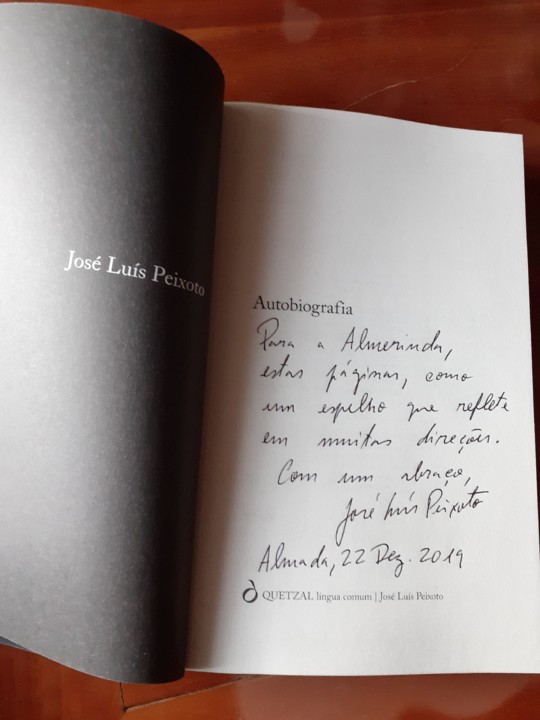 José Luís Peixoto
Autobiografia
Para a Almerinda,
estas páginas, como
um espelho que reflete
em muitas direções.
Com um abraço,
José Luís Peixoto
Almada, 22 Dez. 2019
QUETZAL língua comum | José Luís Peixoto